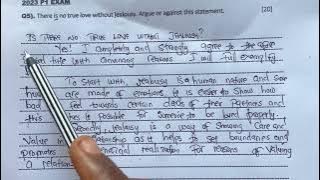 2023 P1 EXAM
Q5). There is no true love without Jealousy. Argue or against this statement. [20]
IS THERE NO TRUE LOVE WITHOUT JEALOUSY?
Yes! I completely and strongly agree to the above
title with convincing reasons I will full exemplify
To Start with Jealousy is a human nature and since
are made of emotions it is easier to Show how
bad feel towards certain of their Partners and
this is Possible for someone to be loved properly
Secondly, Jealousy is a way of Showing Care and
Value in as it helps to set boundaries and
Promotes realization for reasons of Valuing
a relation